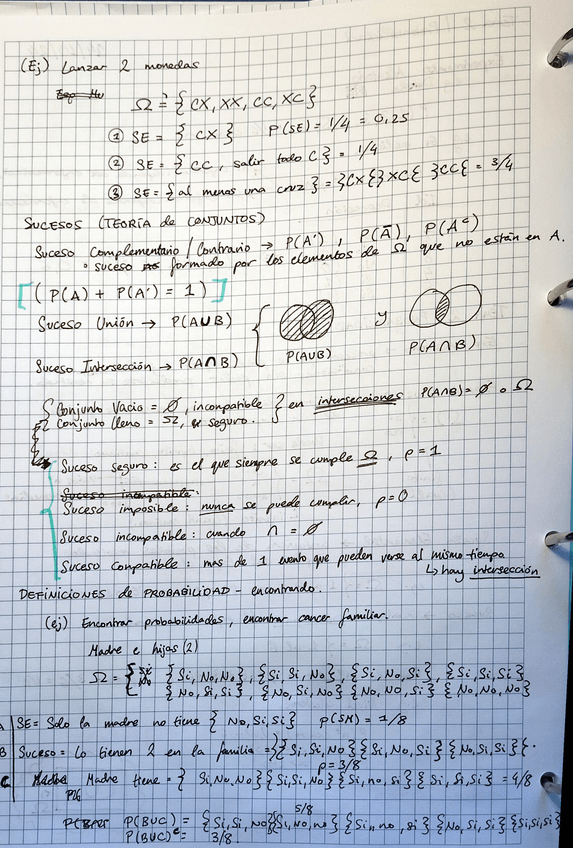 (Ej) Lanzar 2 monedas
Ω = { CX, XX, CC, XC }
① SE = { CX } P(SE) = 1/4 = 0,25
② SE = { CC, salir todo C } = 1/4
③ SE = { al menos una cruz } = }CX{ }XC{ }CC{ = 3/4
SUCESOS (TEORÍA de CONJUNTOS)
Suceso Complementario / Contrario → P(A'), P(Ā), P(Aᶜ)
• suceso formado por los elementos de Ω que no están en A.
[( P(A) + P(A') = 1 )]
Suceso Unión → P(A∪B) { y
P(A∪B) P(A∩B)
Suceso Intersección → P(A∩B)
{ Conjunto Vacio = ∅, incompatible } en intersecciones P(A∩B) = ∅ o Ω
Conjunto lleno = Ω, seguro.
Suceso seguro: es el que siempre se cumple Ω, p = 1
Suceso incompatible:
Suceso imposible: nunca se puede cumplir, p = 0
Suceso incompatible: cuando ∩ = ∅
Suceso compatible: mas de 1 evento que pueden verse al mismo tiempo
↳ hay intersección
DEFINICIONES de PROBABILIDAD - encontrando.
(ej) Encontrar probabilidades, encontrar cancer familiar.
Madre e hijas (2)
Ω = { {Si, No, No}, {Si, Si, No}, {Si, No, Si}, {Si, Si, Si}
{No, Si, Si}, {No, Si, No} {No, No, Si} {No, No, No}
A SE = Solo la madre no tiene { No, Si, Si } = 1/8
B Suceso = Lo tienen 2 en la familia = }{ Si, Si, No } { Si, No, Si } { No, Si, Si } {.
p = 3/8
C Madre tiene = { Si, No, No } { Si, Si, No } { Si, no, si } { Si, Si, Si } = 4/8
5/8
P(B∪C) = {Si, Si, No} {Si, No, no} {Si, no, si} {No, Si, Si} {Si, Si, Si}
P(B∪C)ᶜ = 3/8.